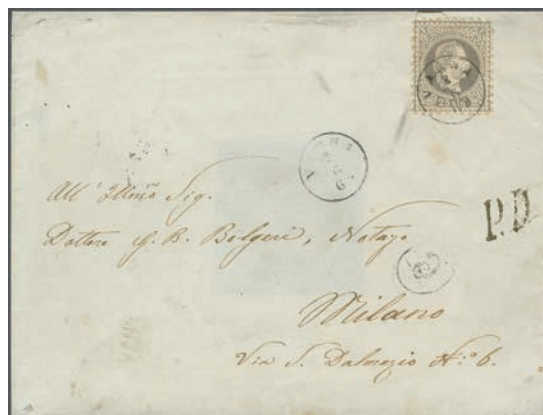 P.D.
All' Illmo Sig.
Dottore G. B. Bolgeri, Notajo
Milano
Via S. Dalmazio N.º 6.